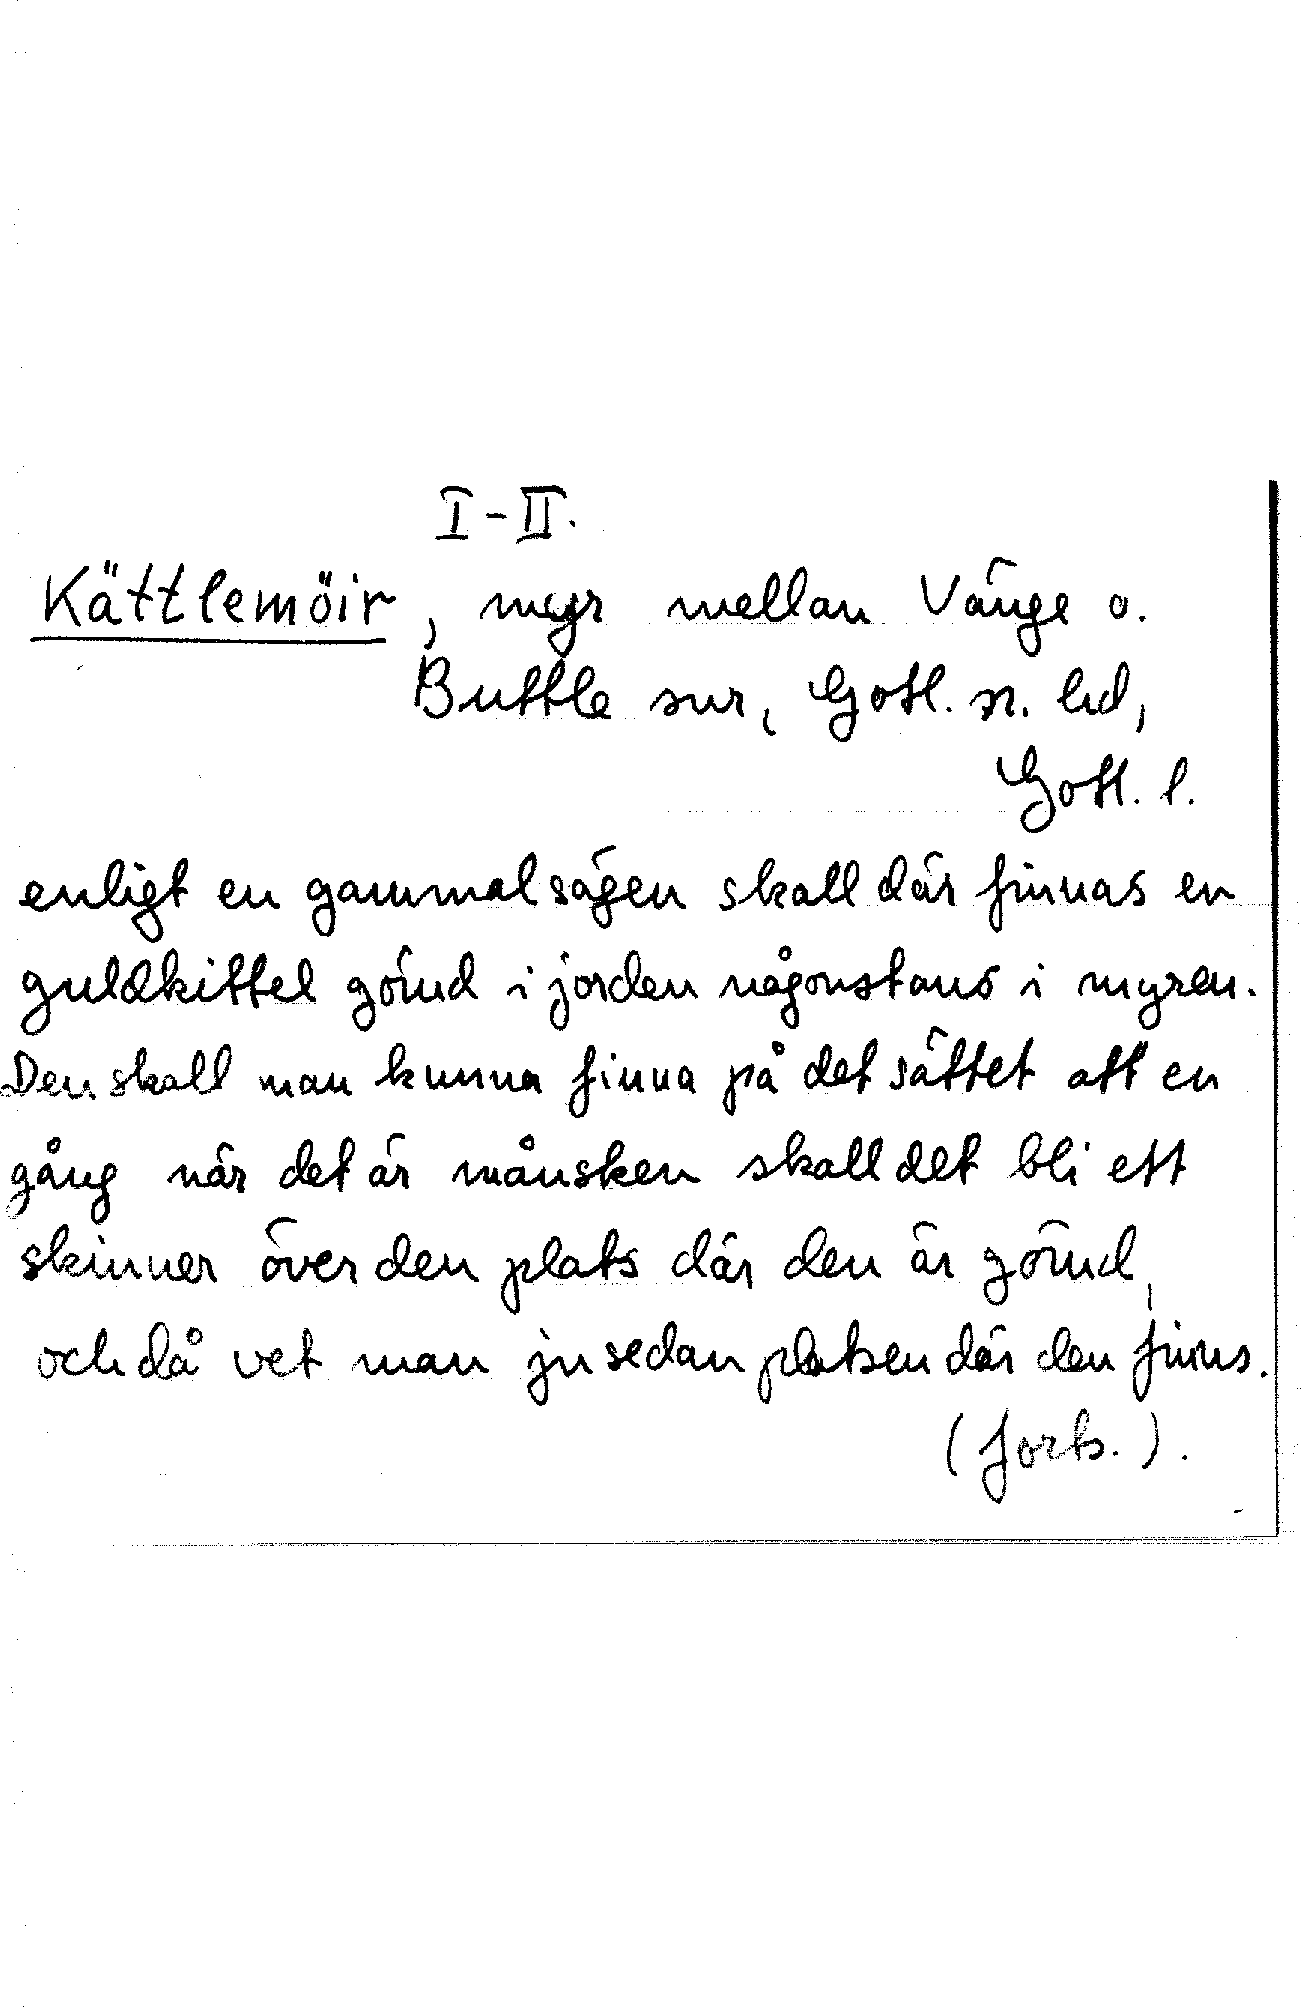 I-II.
Kättlemöir, myr mellan Vänge o.
Buttle snr, Gotl. n. hd,
Gotl. l.
enligt en gammal sägen skall där finnas en
guldkittel gömd i jorden någonstans i myren.
Den skall man kunna finna på det sättet att en
gång när det är månsken skall det bli ett
skimmer över den plats där den är gömd,
och då vet man ju sedan platsen där den finns.
(forts.).